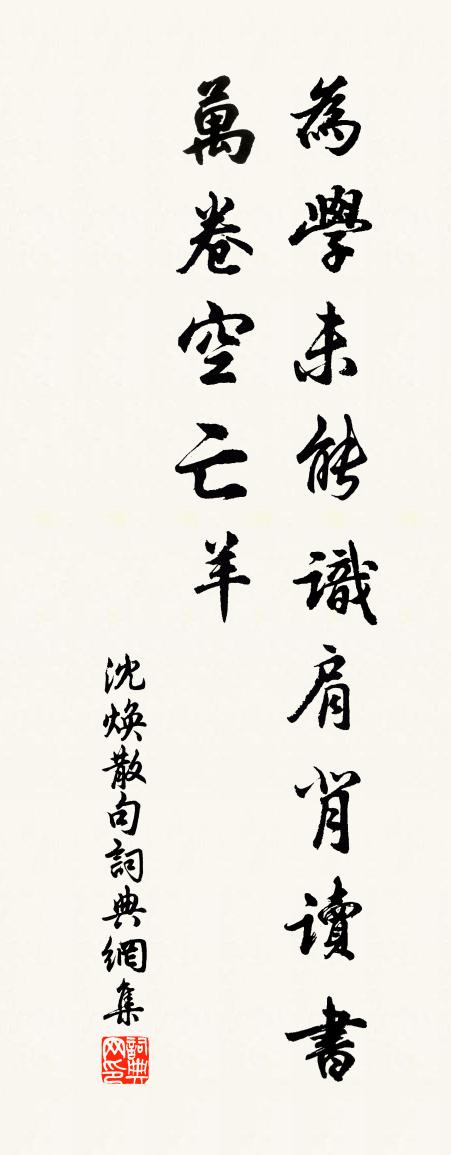 為學未能識肩背讀書
萬卷空亡羊
沈煥散句詞典網集
詞典网印